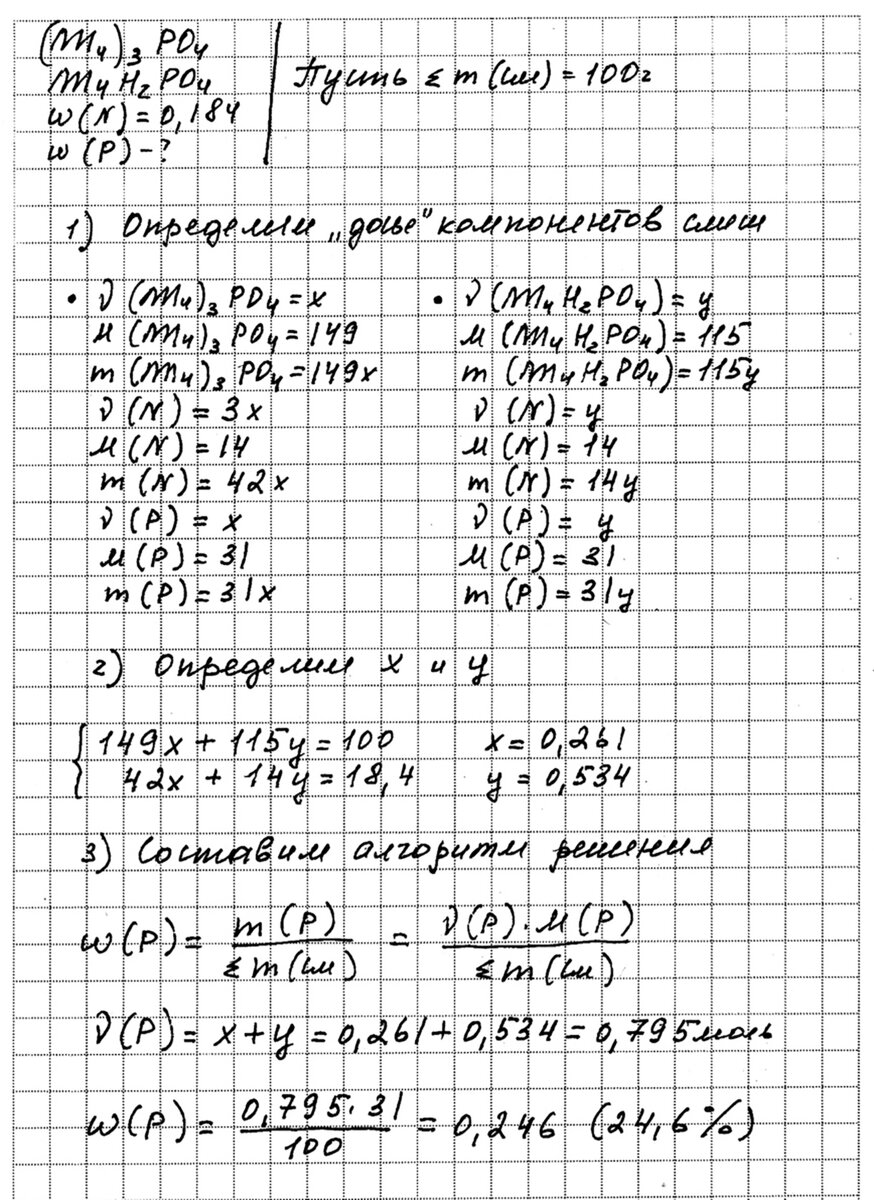 (NH₄)₃ PO₄
NH₄ H₂ PO₄
ω(N) = 0,184
ω(P) - ?
Пусть Σ m (см) = 100г
1) Определим „досье“ компонентов смеси
• ν (NH₄)₃ PO₄ = x
M (NH₄)₃ PO₄ = 149
m (NH₄)₃ PO₄ = 149x
ν (N) = 3x
M (N) = 14
m (N) = 42x
ν (P) = x
M (P) = 31
m (P) = 31x
• ν (NH₄ H₂ PO₄) = y
M (NH₄ H₂ PO₄) = 115
m (NH₄ H₂ PO₄) = 115y
ν (N) = y
M (N) = 14
m (N) = 14y
ν (P) = y
M (P) = 31
m (P) = 31y
2) Определим x и y
149x + 115y = 100 x = 0,261
42x + 14y = 18,4 y = 0,534
3) Составим алгоритм решения
ω(P) = m (P) / Σ m (см) = ν(P) · M (P) / Σ m (см)
ν(P) = x + y = 0,261 + 0,534 = 0,795 моль
ω(P) = 0,795 · 31 / 100 = 0,246 (24,6%)